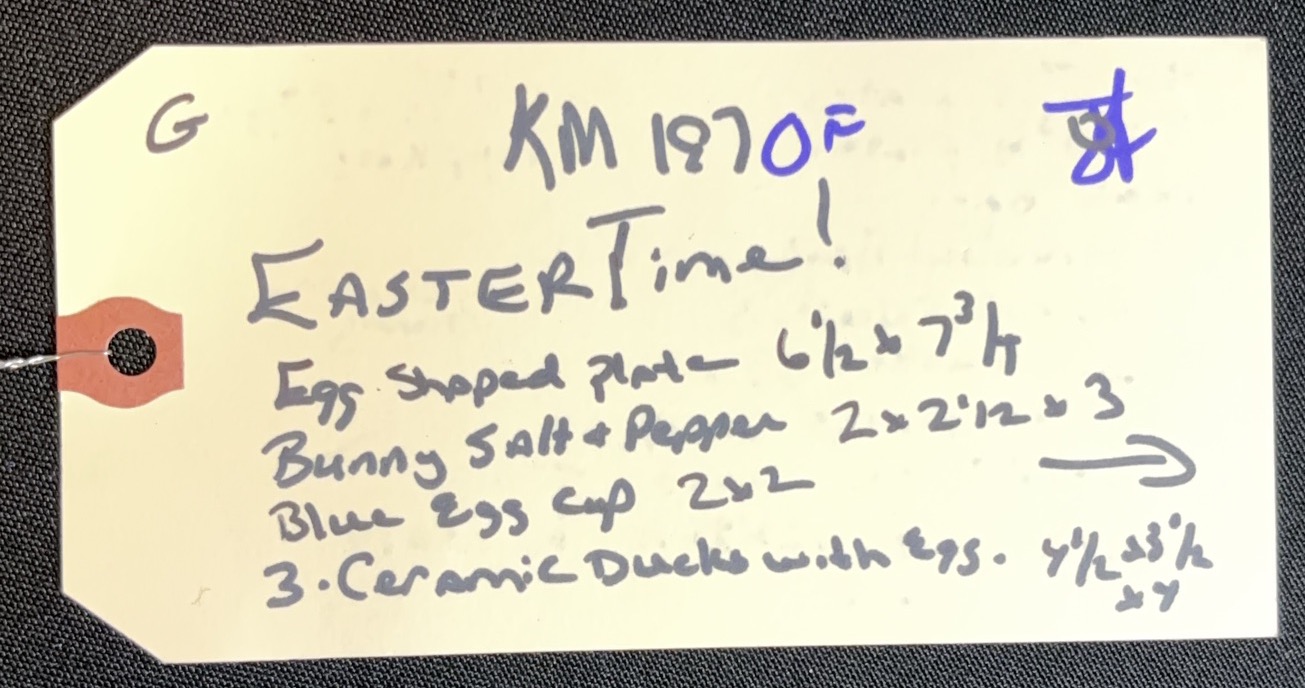 G
KM 1870F
EASTER Time!
Egg Shaped plate 6 1/2 x 7 3/4
Bunny Salt + Pepper 2 x 2 1/2 x 3
Blue Egg Cup 2x2
3. Ceramic Ducks with Egs. 4 1/2 x 3 1/2
x 4